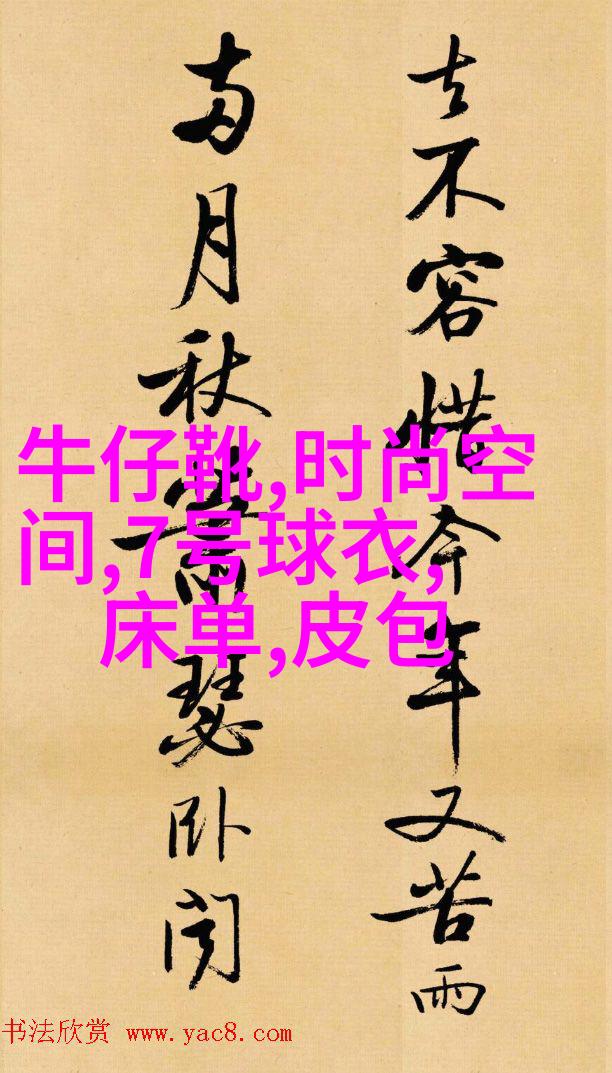 去不容惜今年又苦雨
兩月秋蕭瑟卧聞
牛仔靴,时尚空
间,7号球衣,
床单,皮包
书法欣赏 www.yac8.com